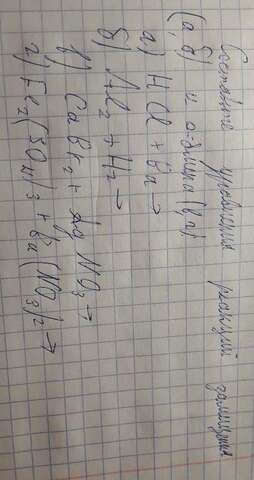 Составьте уравнения реакций замещения
(а, б) и обмена (в, г)
а) HCl + Ba →
б) Al2 + H2 →
в) CaBr2 + AgNO3 →
г) Fe2(SO4)3 + Ba(NO3)2 →